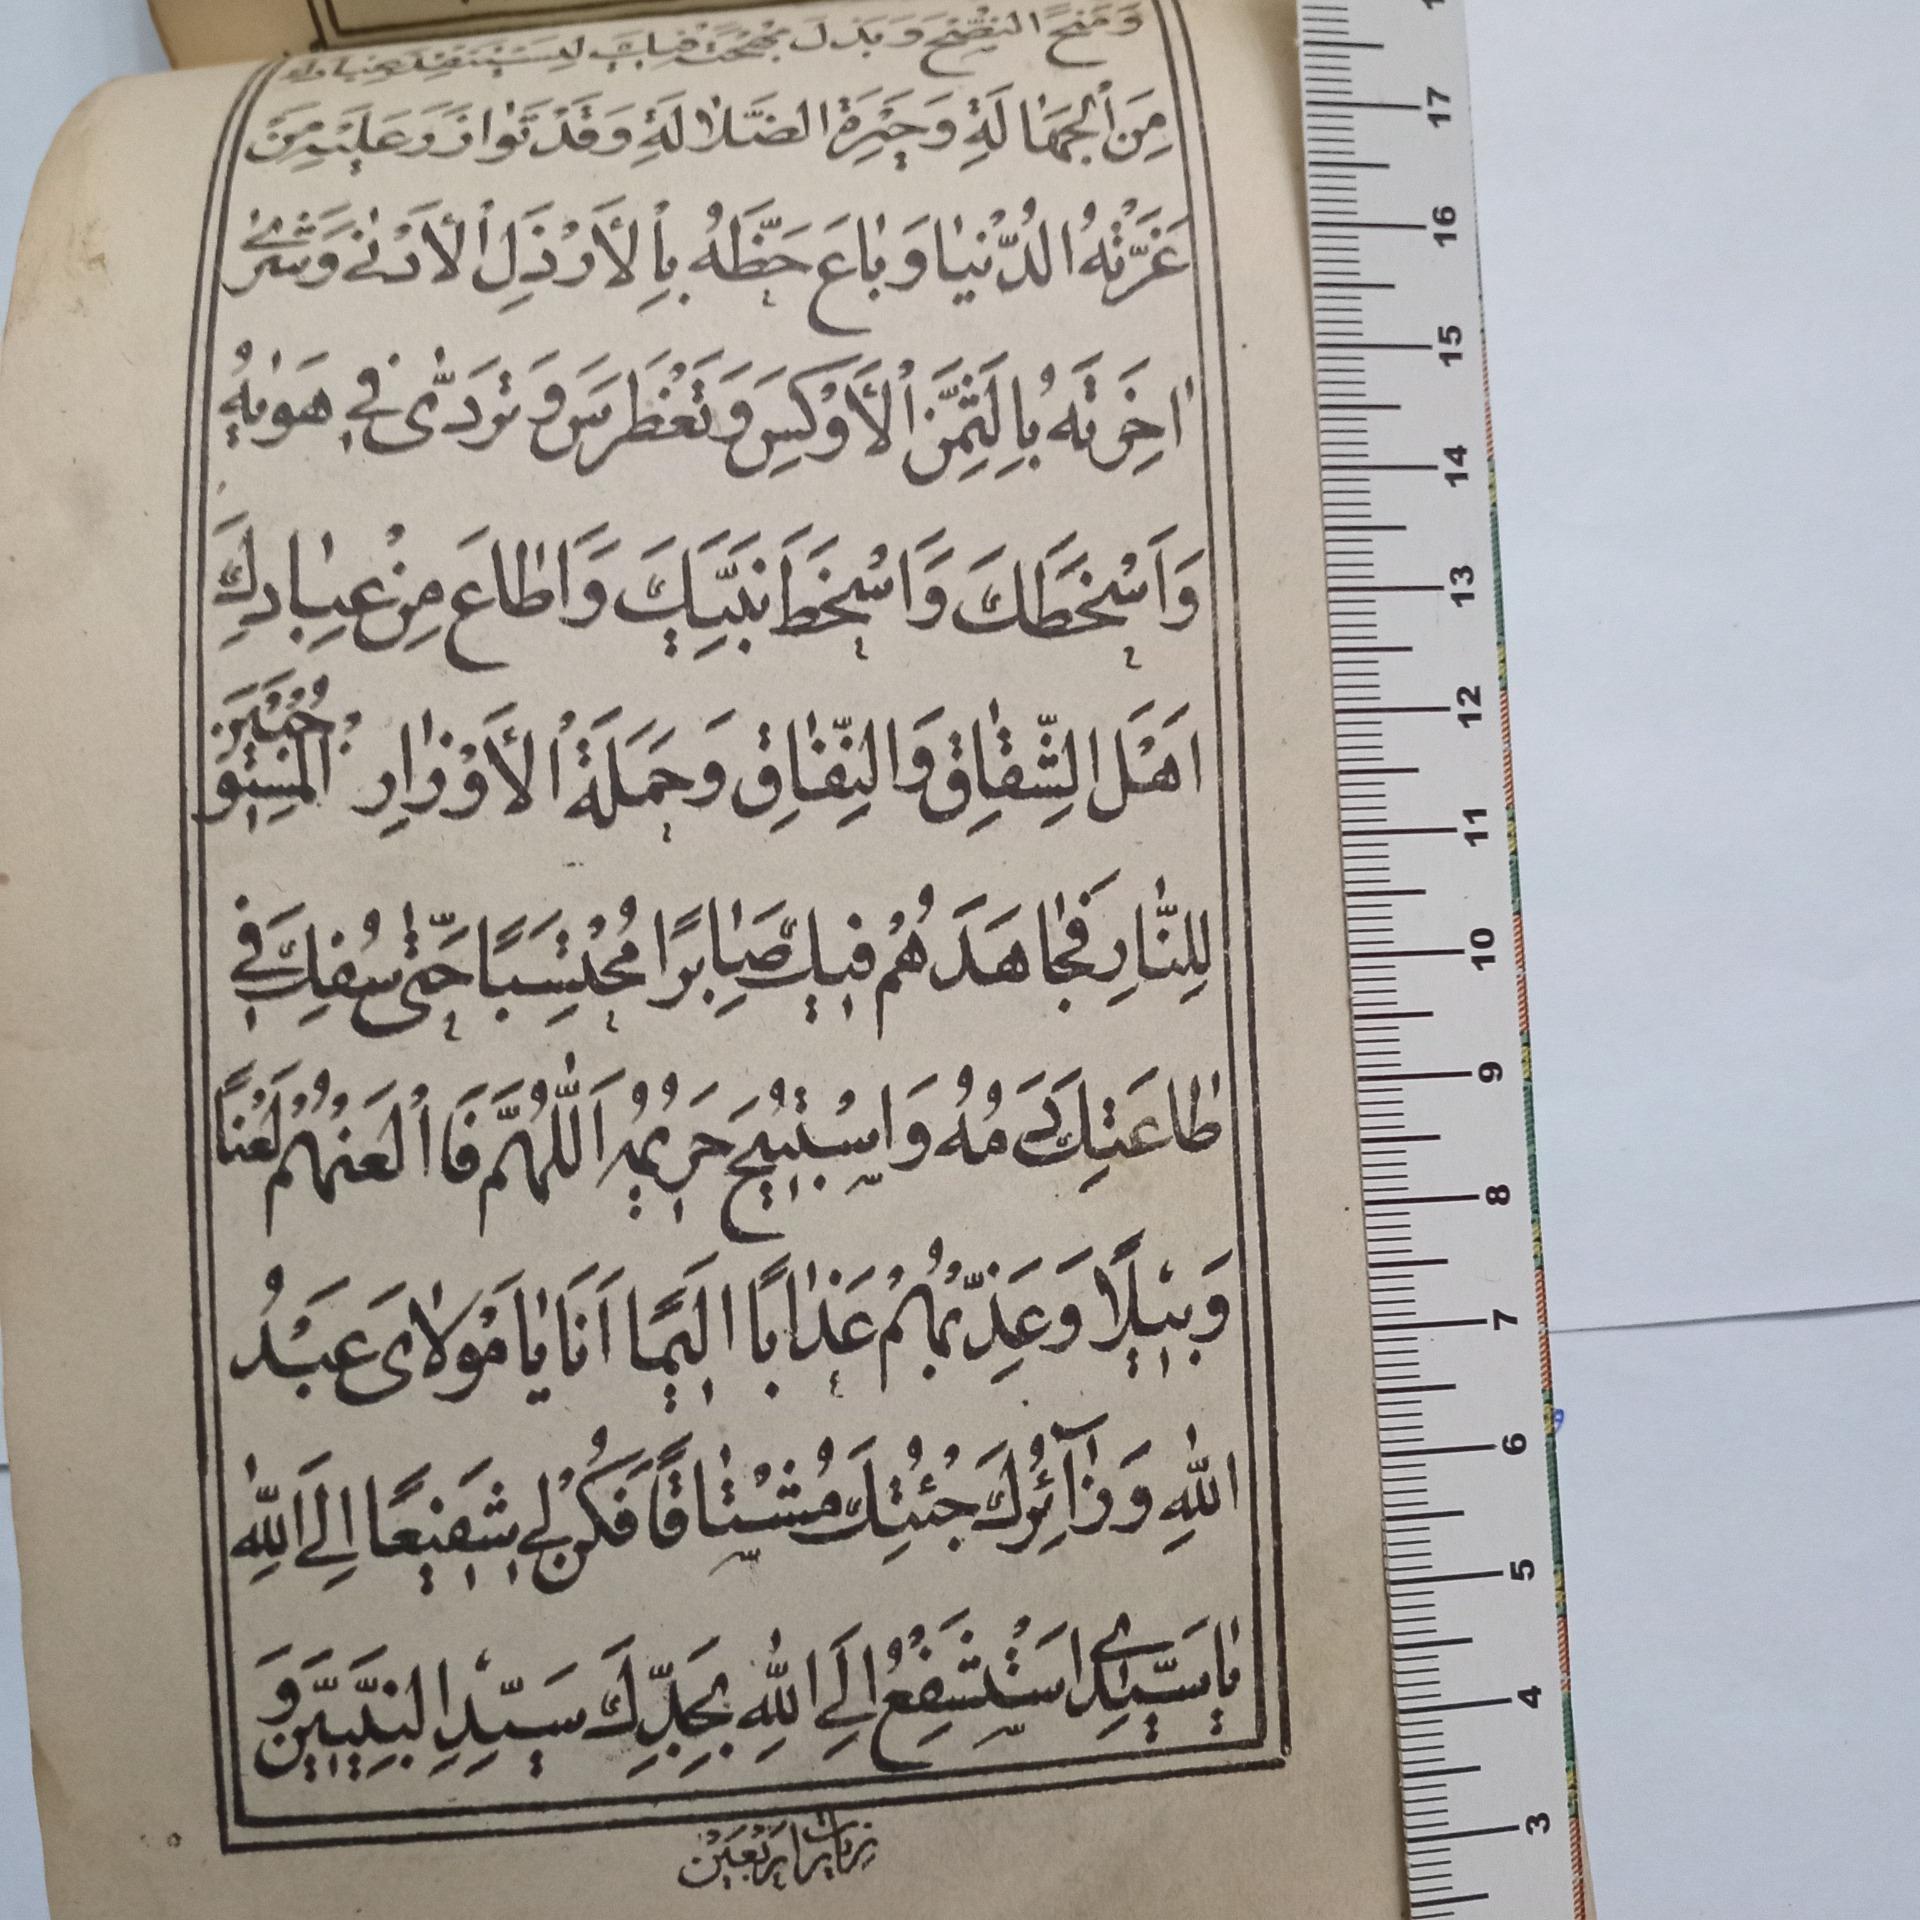 وَمَنَحَ النُّصْحَ وَبَذَلَ مُهْجَتَهُ فِيكَ لِيَسْتَنْقِذَ عِبَادَكَ
مِنَ الْجَهَالَةِ وَحَيْرَةِ الضَّلَالَةِ وَقَدْ تَوَازَرَ عَلَيْهِ مَنْ
غَرَّتْهُ الدُّنْيَا وَبَاعَ حَظَّهُ بِالْأَرْذَلِ الْأَدْنَى وَشَرَى
اخِرَتَهُ بِالثَّمَنِ الْأَوْكَسِ وَتَغَطْرَسَ وَتَرَدَّى فِي هَوٰيهُ
وَاَسْخَطَكَ وَاَسْخَطَ نَبِيَّكَ وَاَطَاعَ مِنْ عِبَادِكَ
اَهْلَ الشِّقَاقِ وَالنِّفَاقِ وَحَمَلَةَ الْأَوْزَارِ الْمُسْتَوْجِبِينَ
لِلنَّارِ فَجَاهَدَهُمْ فِيكَ صَابِرًا مُحْتَسِبًا حَتَّى سُفِكَ فِي
طَاعَتِكَ دَمُهُ وَاسْتُبِيحَ حَرِيمُهُ اَللّٰهُمَّ فَالْعَنْهُمْ لَعْنًا
وَبِيلًا وَعَذِّبْهُمْ عَذَابًا اَلِيمًا اَنَا يَا مَوْلَايَ عَبْدُ
اللّٰهِ وَزَآئِرُكَ جِئْتُكَ مُشْتَاقًا فَكُنْ لِي شَفِيعًا اِلَى اللّٰهِ
يَا سَيِّدِي اَسْتَشْفِعُ اِلَى اللّٰهِ بِجَدِّكَ سَيِّدِ النَّبِيِّينَ وَ
زيارت اربعين